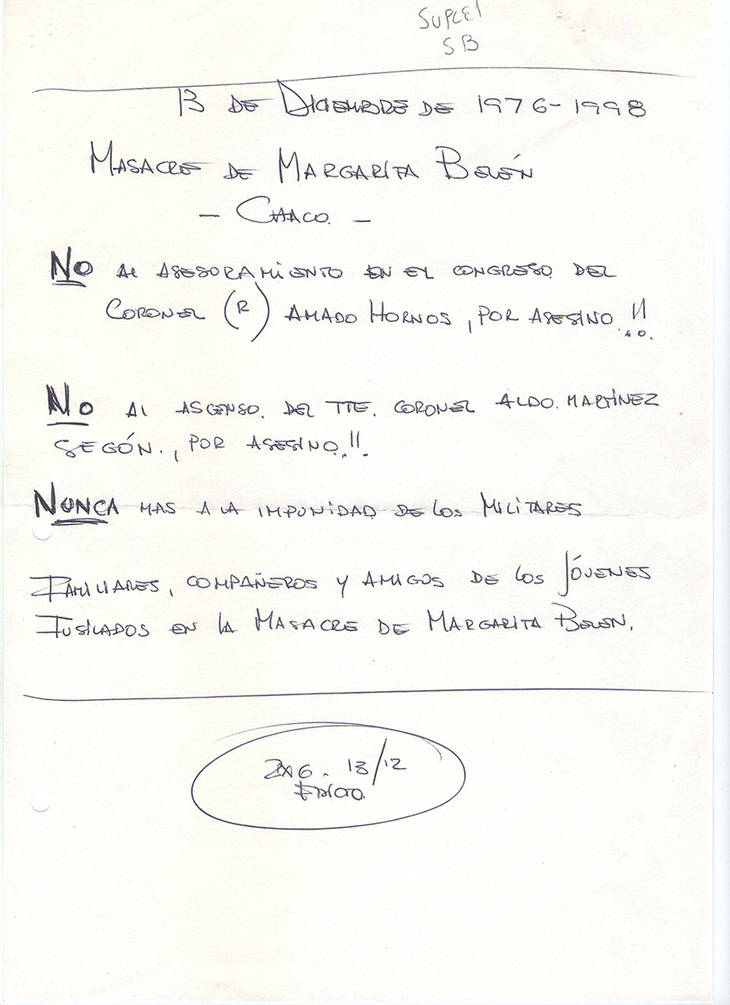 SB
13 DE DICIEMBRE DE 1976-1998
MASACRE DE MARGARITA BELÉN
- CHACO. -
NO AL ASESORAMIENTO EN EL CONGRESO DEL
CORONEL (R) AMADO HORNOS, POR ASESINO.!!
NO AL ASCENSO. DEL TTE. CORONEL ALDO. MARTÍNEZ
SEGÓN., POR ASESINO.!!.
NUNCA MAS A LA IMPUNIDAD DE LOS MILITARES
FAMILIARES, COMPAÑEROS Y AMIGOS DE LOS JÓVENES
FUSILADOS EN LA MASACRE DE MARGARITA BELEN.
PAG. 13/12